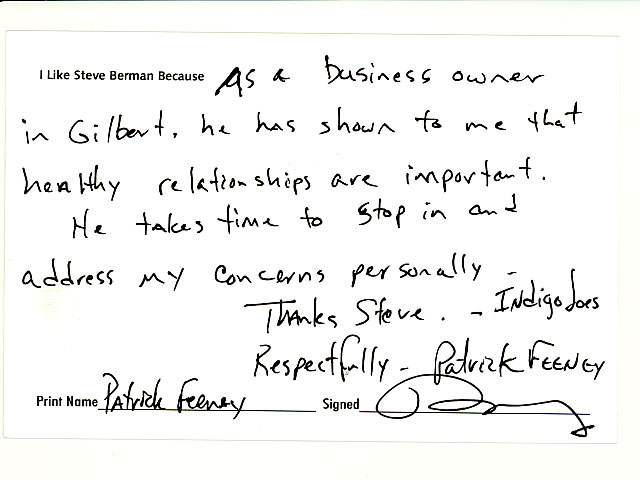 I Like Steve Berman Because As a business owner
in Gilbert, he has shown to me that
healthy relationships are important.
He takes time to stop in and
address my concerns personally -
Thanks Steve. - Indigo Joes
Respectfully - Patrick Feeney
Print Name Patrick Feeney Signed